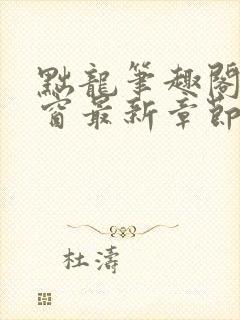 點龍筆趣閣
窗最新章節
杜濤